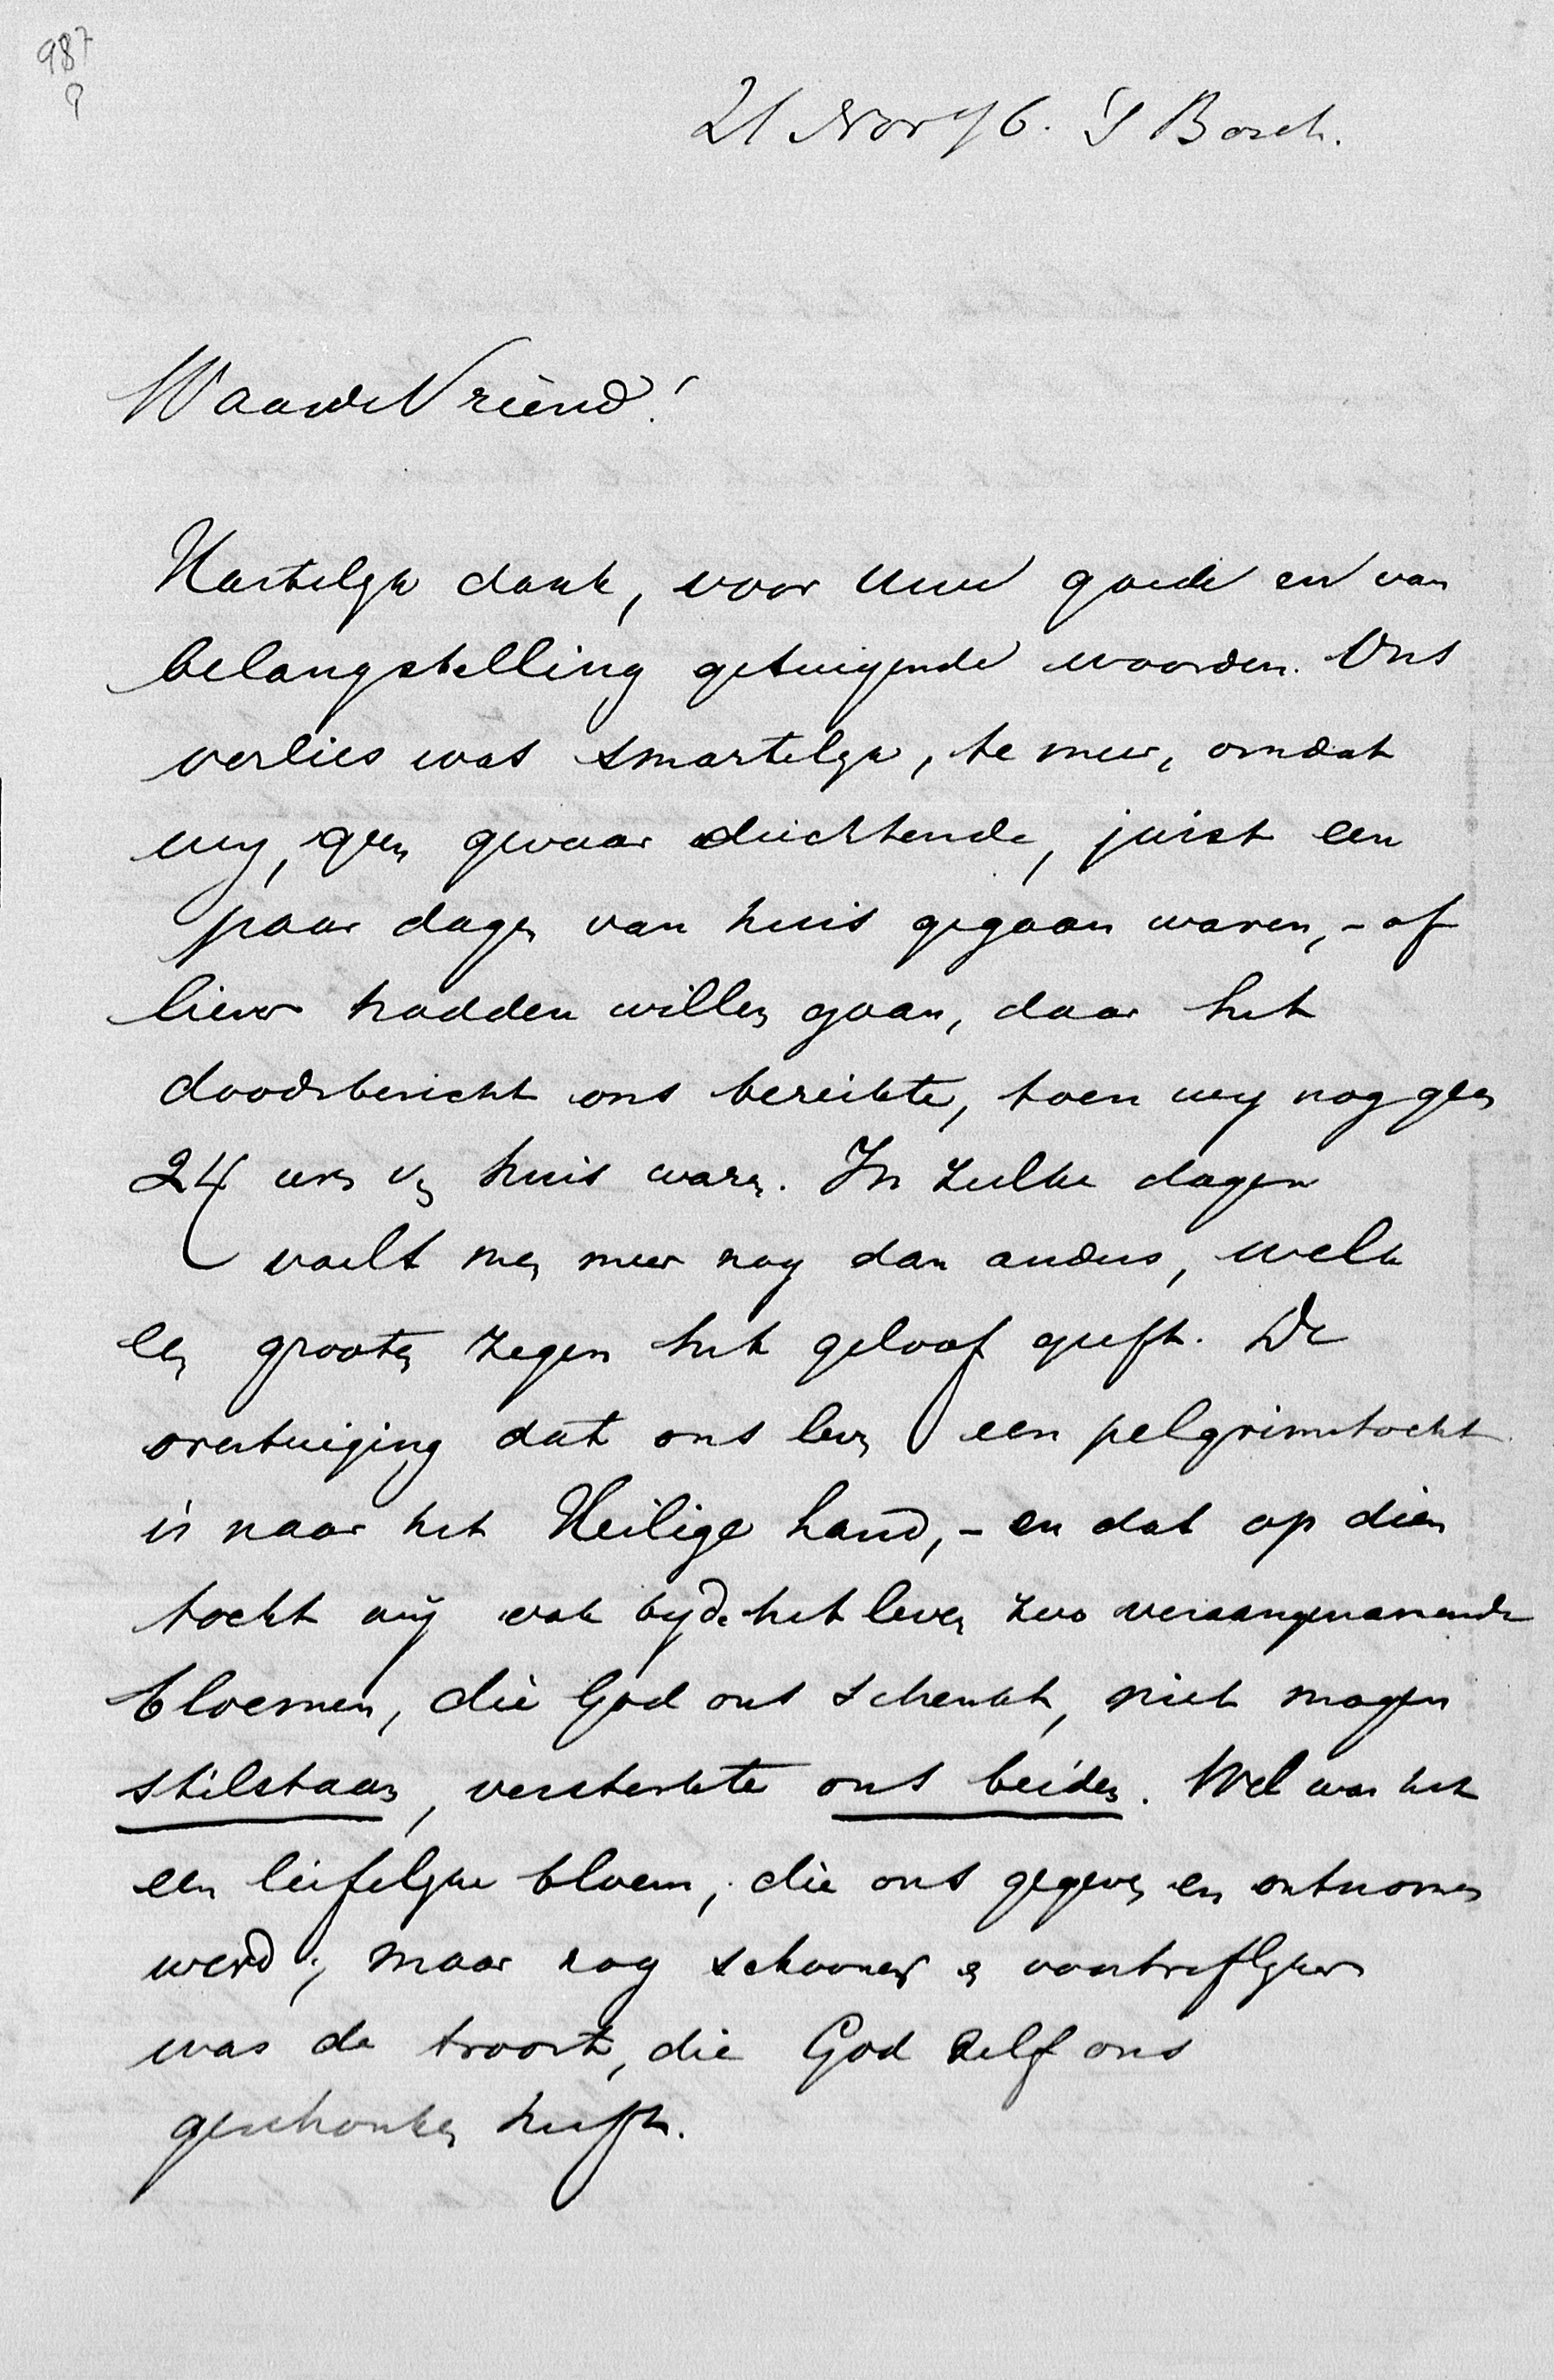 987
21 Nov 76. 'S Bosch.
Waarde Vriend!
Hartelijk dank, voor Uwe goede en van
belangstelling getuigende woorden. Ons
verlies was smartelijk, te meer, omdat
wij, geen gevaar duchtende, juist een
paar dagen van huis gegaan waren, - of
liever hadden willen gaan, daar het
doodsbericht ons bereikte, toen wij nog geen
24 uren v. huis waren. In zulke dagen
voelt men meer nog dan anders, welk
een grooten zegen het geloof geeft. De
overtuiging dat ons leven een pelgrimstocht
is naar het Heilige Land, - en dat op dien
tocht wij ook bij de het leven zoo veraangenamende
bloemen, die God ons schenkt, niet mogen
stilstaan, versterkte ons beiden. Wel was het
een liefelijke bloem, die ons gegeven en ontnomen
werd; maar nog schooner en voortreflijker
was de troost, die God zelf ons
geschonken heeft.